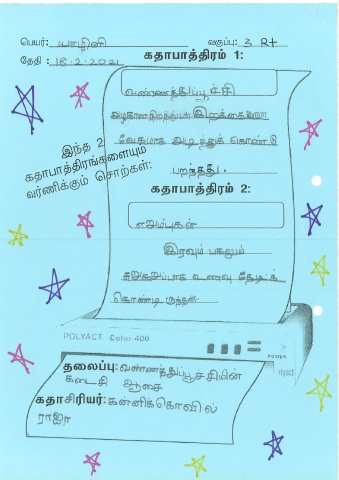 பெயர்: யாழினி வகுப்பு: 3 R+
தேதி : 18.2.2021
கதாபாத்திரம் 1:
வண்ணத்துப்பூச்சி
அழகான இறக்கை
வேகமாக அடித்துக் கொண்டு
பறந்தது.
இந்த 2
கதாபாத்திரங்களையும்
வர்ணிக்கும் சொற்கள்:
கதாபாத்திரம் 2:
எறும்புகள்
இரவும் பகலும்
சுறுசுறுப்பாக உணவு தேடிக்
கொண்டிருந்தன
POLYACT Color 400
POWER
தலைப்பு: வண்ணத்துப்பூச்சியின்
கடைசி ஆசை
கதாசிரியர்: கன்னிக்கொவில்
ராஜா